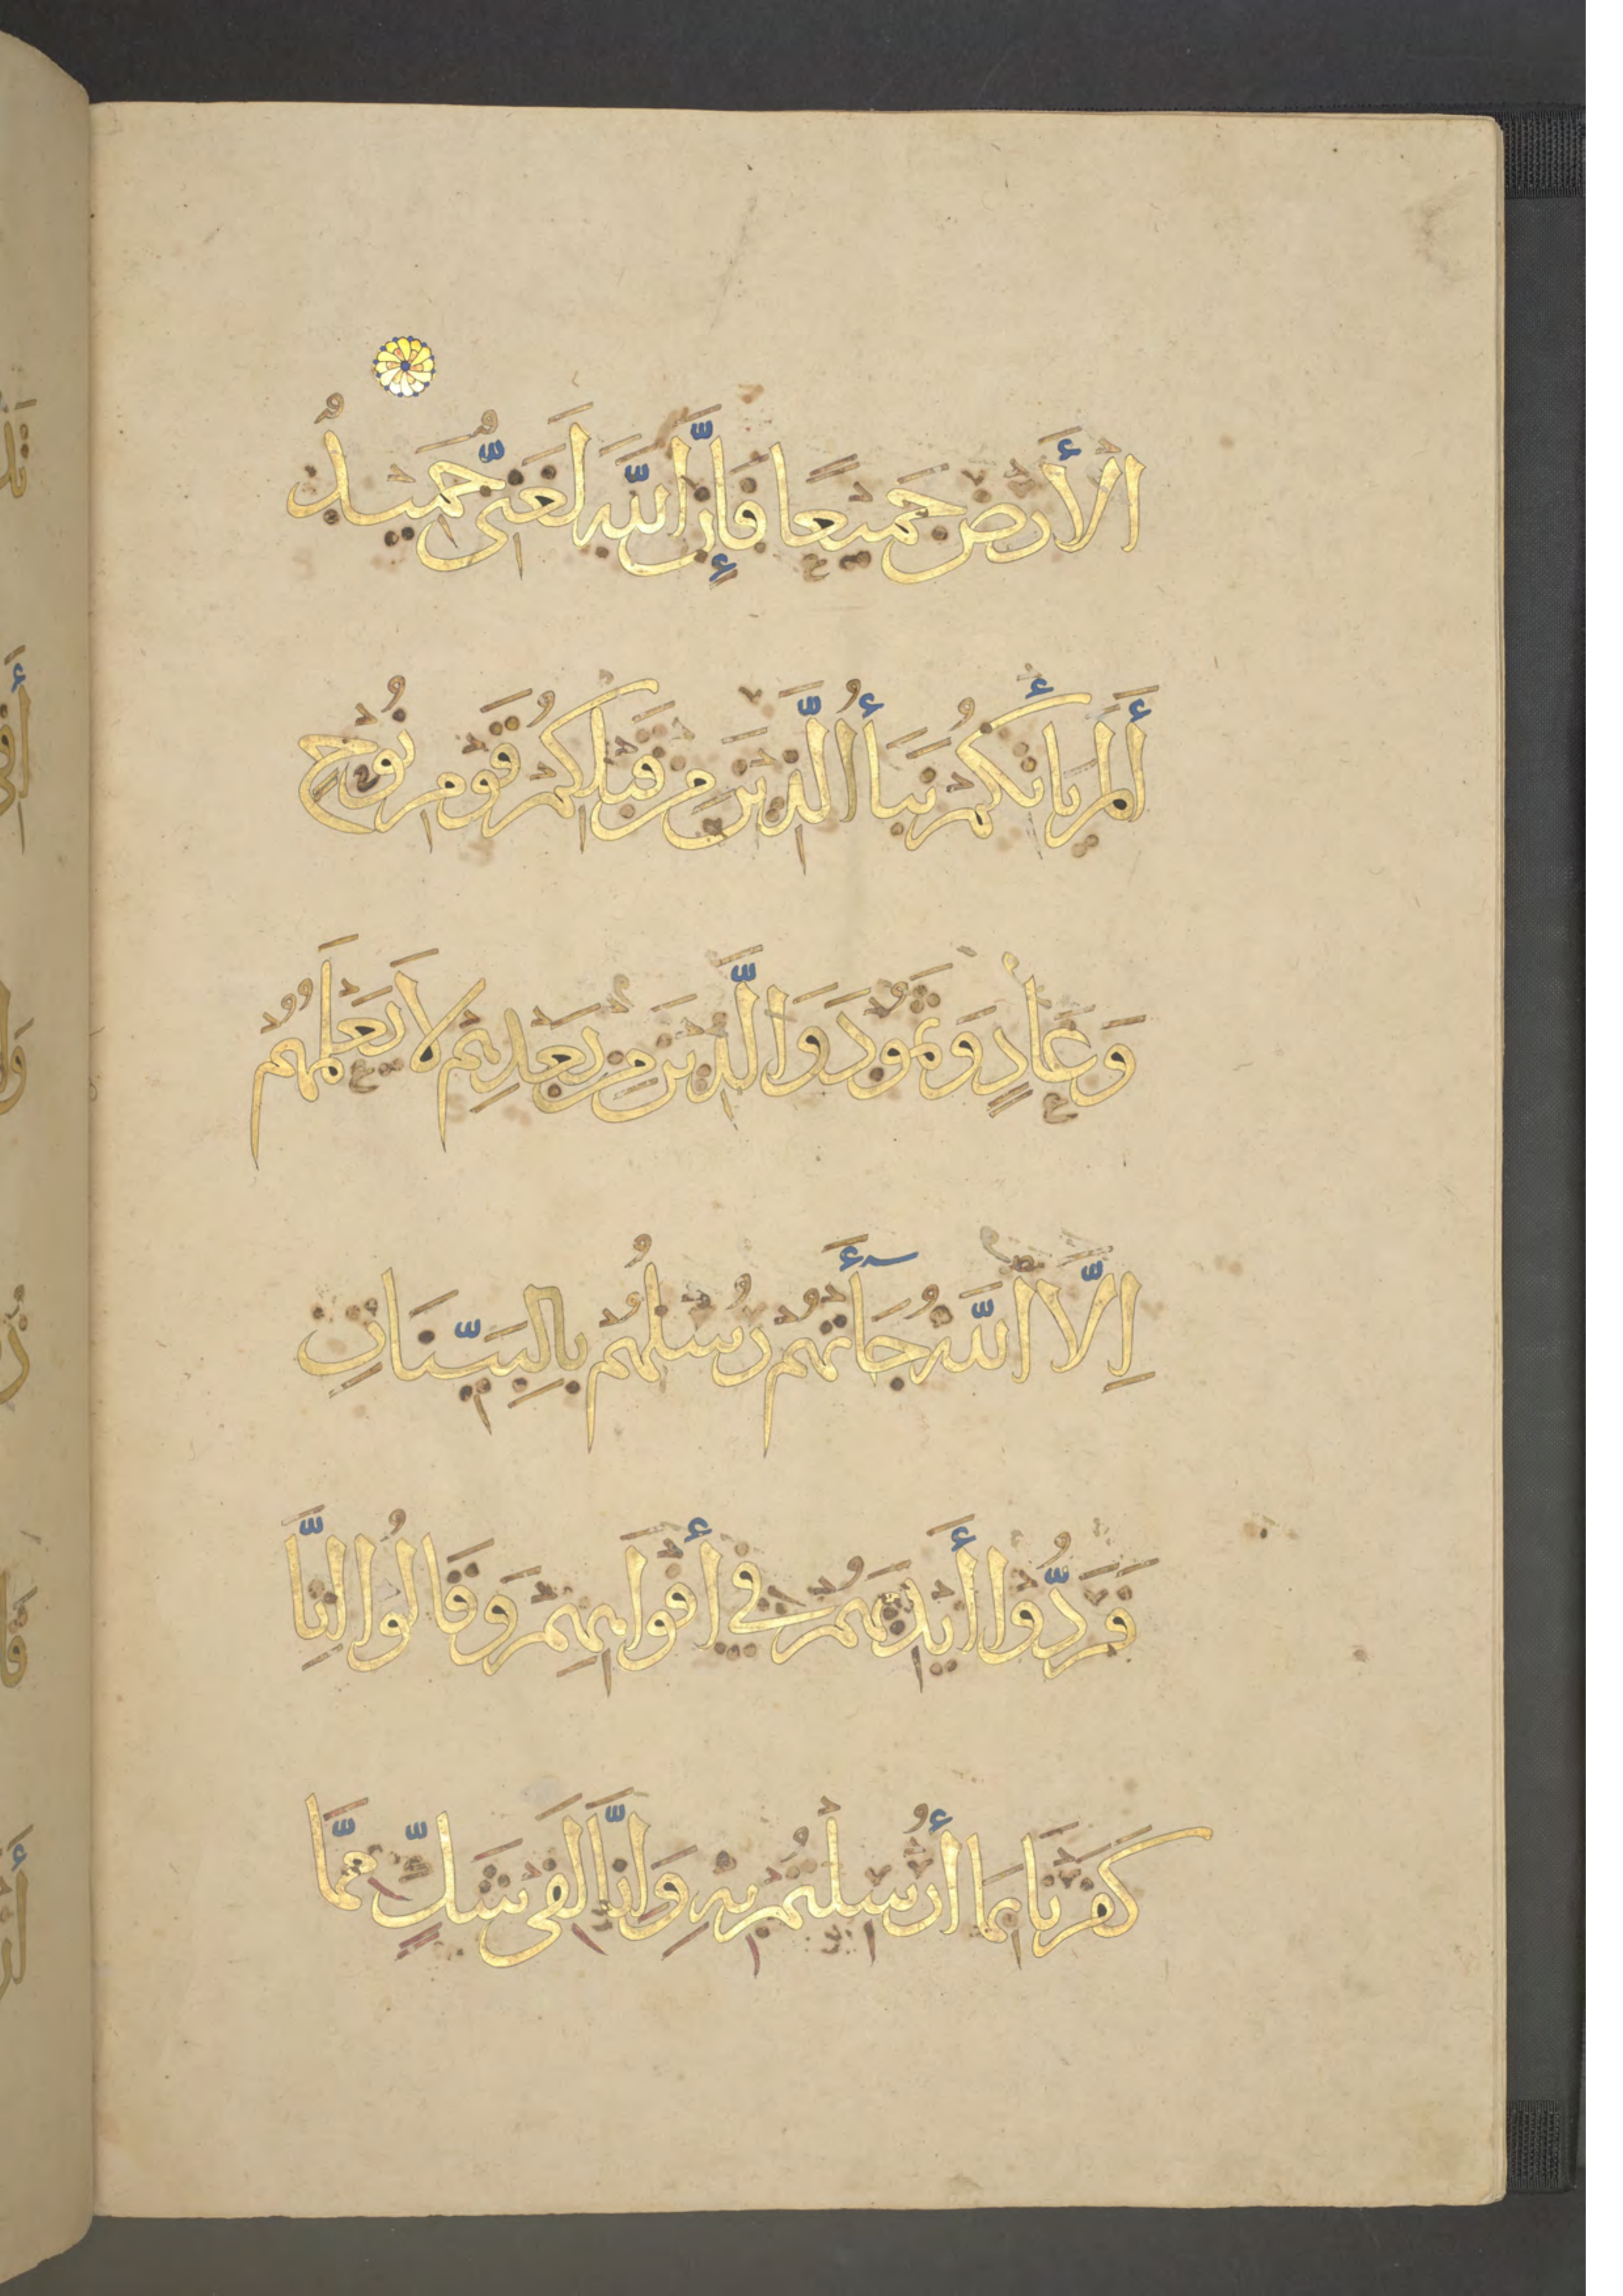 الْأَرْضِ جَمِيْعًا فَإِنَّ اللَّهَ لَغَنِىٌّ حَمِيْدٌ
أَلَمْ يَأْتِكُمْ نَبَأُ الَّذِيْنَ مِنْ قَبْلِكُمْ قَوْمِ نُوْحٍ
وَعَادٍ وَثَمُوْدَ وَالَّذِيْنَ مِنْ بَعْدِهِمْ لَا يَعْلَمُهُمْ
اِلَّا اللَّهُ جَآءَتْهُمْ رُسُلُهُمْ بِالْبَيِّنَاتِ
فَرَدُّوْا أَيْدِيَهُمْ فِيْ أَفْوَاهِهِمْ وَقَالُوْا اِنَّا
كَفَرْنَا بِمَا أُرْسِلْتُمْ بِهِ وَاِنَّا لَفِى شَكٍّ مِمَّا